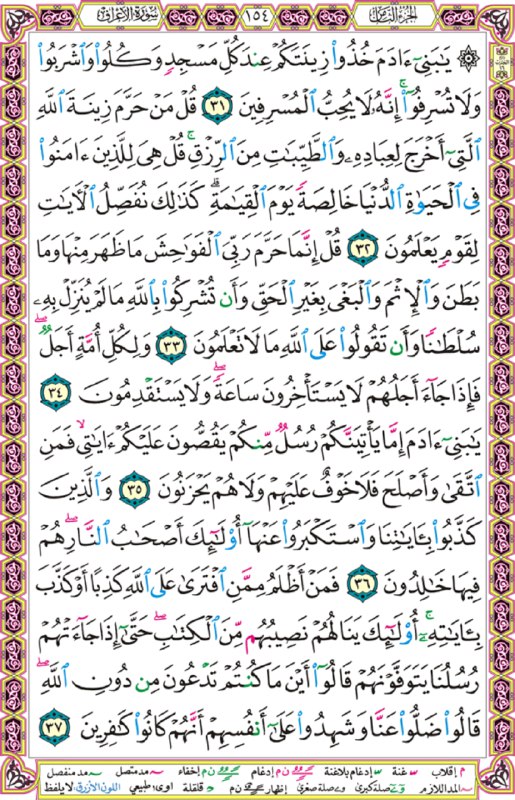 الجزء الثامن ١٥٤ سورة الأعراف
۞ يَـٰبَنِىٓ ءَادَمَ خُذُوا۟ زِينَتَكُمْ عِندَ كُلِّ مَسْجِدٍ وَكُلُوا۟ وَٱشْرَبُوا۟
وَلَا تُسْرِفُوٓا۟ ۚ إِنَّهُۥ لَا يُحِبُّ ٱلْمُسْرِفِينَ ٣١ قُلْ مَنْ حَرَّمَ زِينَةَ ٱللَّهِ
ٱلَّتِىٓ أَخْرَجَ لِعِبَادِهِۦ وَٱلطَّيِّبَـٰتِ مِنَ ٱلرِّزْقِ ۚ قُلْ هِىَ لِلَّذِينَ ءَامَنُوا۟
فِى ٱلْحَيَوٰةِ ٱلدُّنْيَا خَالِصَةً يَوْمَ ٱلْقِيَـٰمَةِ ۗ كَذَٰلِكَ نُفَصِّلُ ٱلْـَٔايَـٰتِ
لِقَوْمٍ يَعْلَمُونَ ٣٢ قُلْ إِنَّمَا حَرَّمَ رَبِّىَ ٱلْفَوَٰحِشَ مَا ظَهَرَ مِنْهَا وَمَا
بَطَنَ وَٱلْإِثْمَ وَٱلْبَغْىَ بِغَيْرِ ٱلْحَقِّ وَأَن تُشْرِكُوا۟ بِٱللَّهِ مَا لَمْ يُنَزِّلْ بِهِۦ
سُلْطَـٰنًا وَأَن تَقُولُوا۟ عَلَى ٱللَّهِ مَا لَا تَعْلَمُونَ ٣٣ وَلِكُلِّ أُمَّةٍ أَجَلٌ ۖ
فَإِذَا جَآءَ أَجَلُهُمْ لَا يَسْتَأْخِرُونَ سَاعَةً ۖ وَلَا يَسْتَقْدِمُونَ ٣٤
يَـٰبَنِىٓ ءَادَمَ إِمَّا يَأْتِيَنَّكُمْ رُسُلٌ مِّنكُمْ يَقُصُّونَ عَلَيْكُمْ ءَايَـٰتِى ۙ فَمَنِ
ٱتَّقَىٰ وَأَصْلَحَ فَلَا خَوْفٌ عَلَيْهِمْ وَلَا هُمْ يَحْزَنُونَ ٣٥ وَٱلَّذِينَ
كَذَّبُوا۟ بِـَٔايَـٰتِنَا وَٱسْتَكْبَرُوا۟ عَنْهَآ أُو۟لَـٰٓئِكَ أَصْحَـٰبُ ٱلنَّارِ ۖ هُمْ
فِيهَا خَـٰلِدُونَ ٣٦ فَمَنْ أَظْلَمُ مِمَّنِ ٱفْتَرَىٰ عَلَى ٱللَّهِ كَذِبًا أَوْ كَذَّبَ
بِـَٔايَـٰتِهِۦٓ ۚ أُو۟لَـٰٓئِكَ يَنَالُهُمْ نَصِيبُهُم مِّنَ ٱلْكِتَـٰبِ ۖ حَتَّىٰٓ إِذَا جَآءَتْهُمْ
رُسُلُنَا يَتَوَفَّوْنَهُمْ قَالُوٓا۟ أَيْنَ مَا كُنتُمْ تَدْعُونَ مِن دُونِ ٱللَّهِ ۖ
قَالُوا۟ ضَلُّوا۟ عَنَّا وَشَهِدُوا۟ عَلَىٰٓ أَنفُسِهِمْ أَنَّهُمْ كَانُوا۟ كَـٰفِرِينَ ٣٧
م إقلاب س غنة س إدغام بلاغنة ن م إدغام ن م إخفاء مد متصل مد منفصل
المد اللازم صلة كبرى و صلة صغرى إظهار ن م قلقلة اوى: طبيعي اللون الأزرق: لا يلفظ